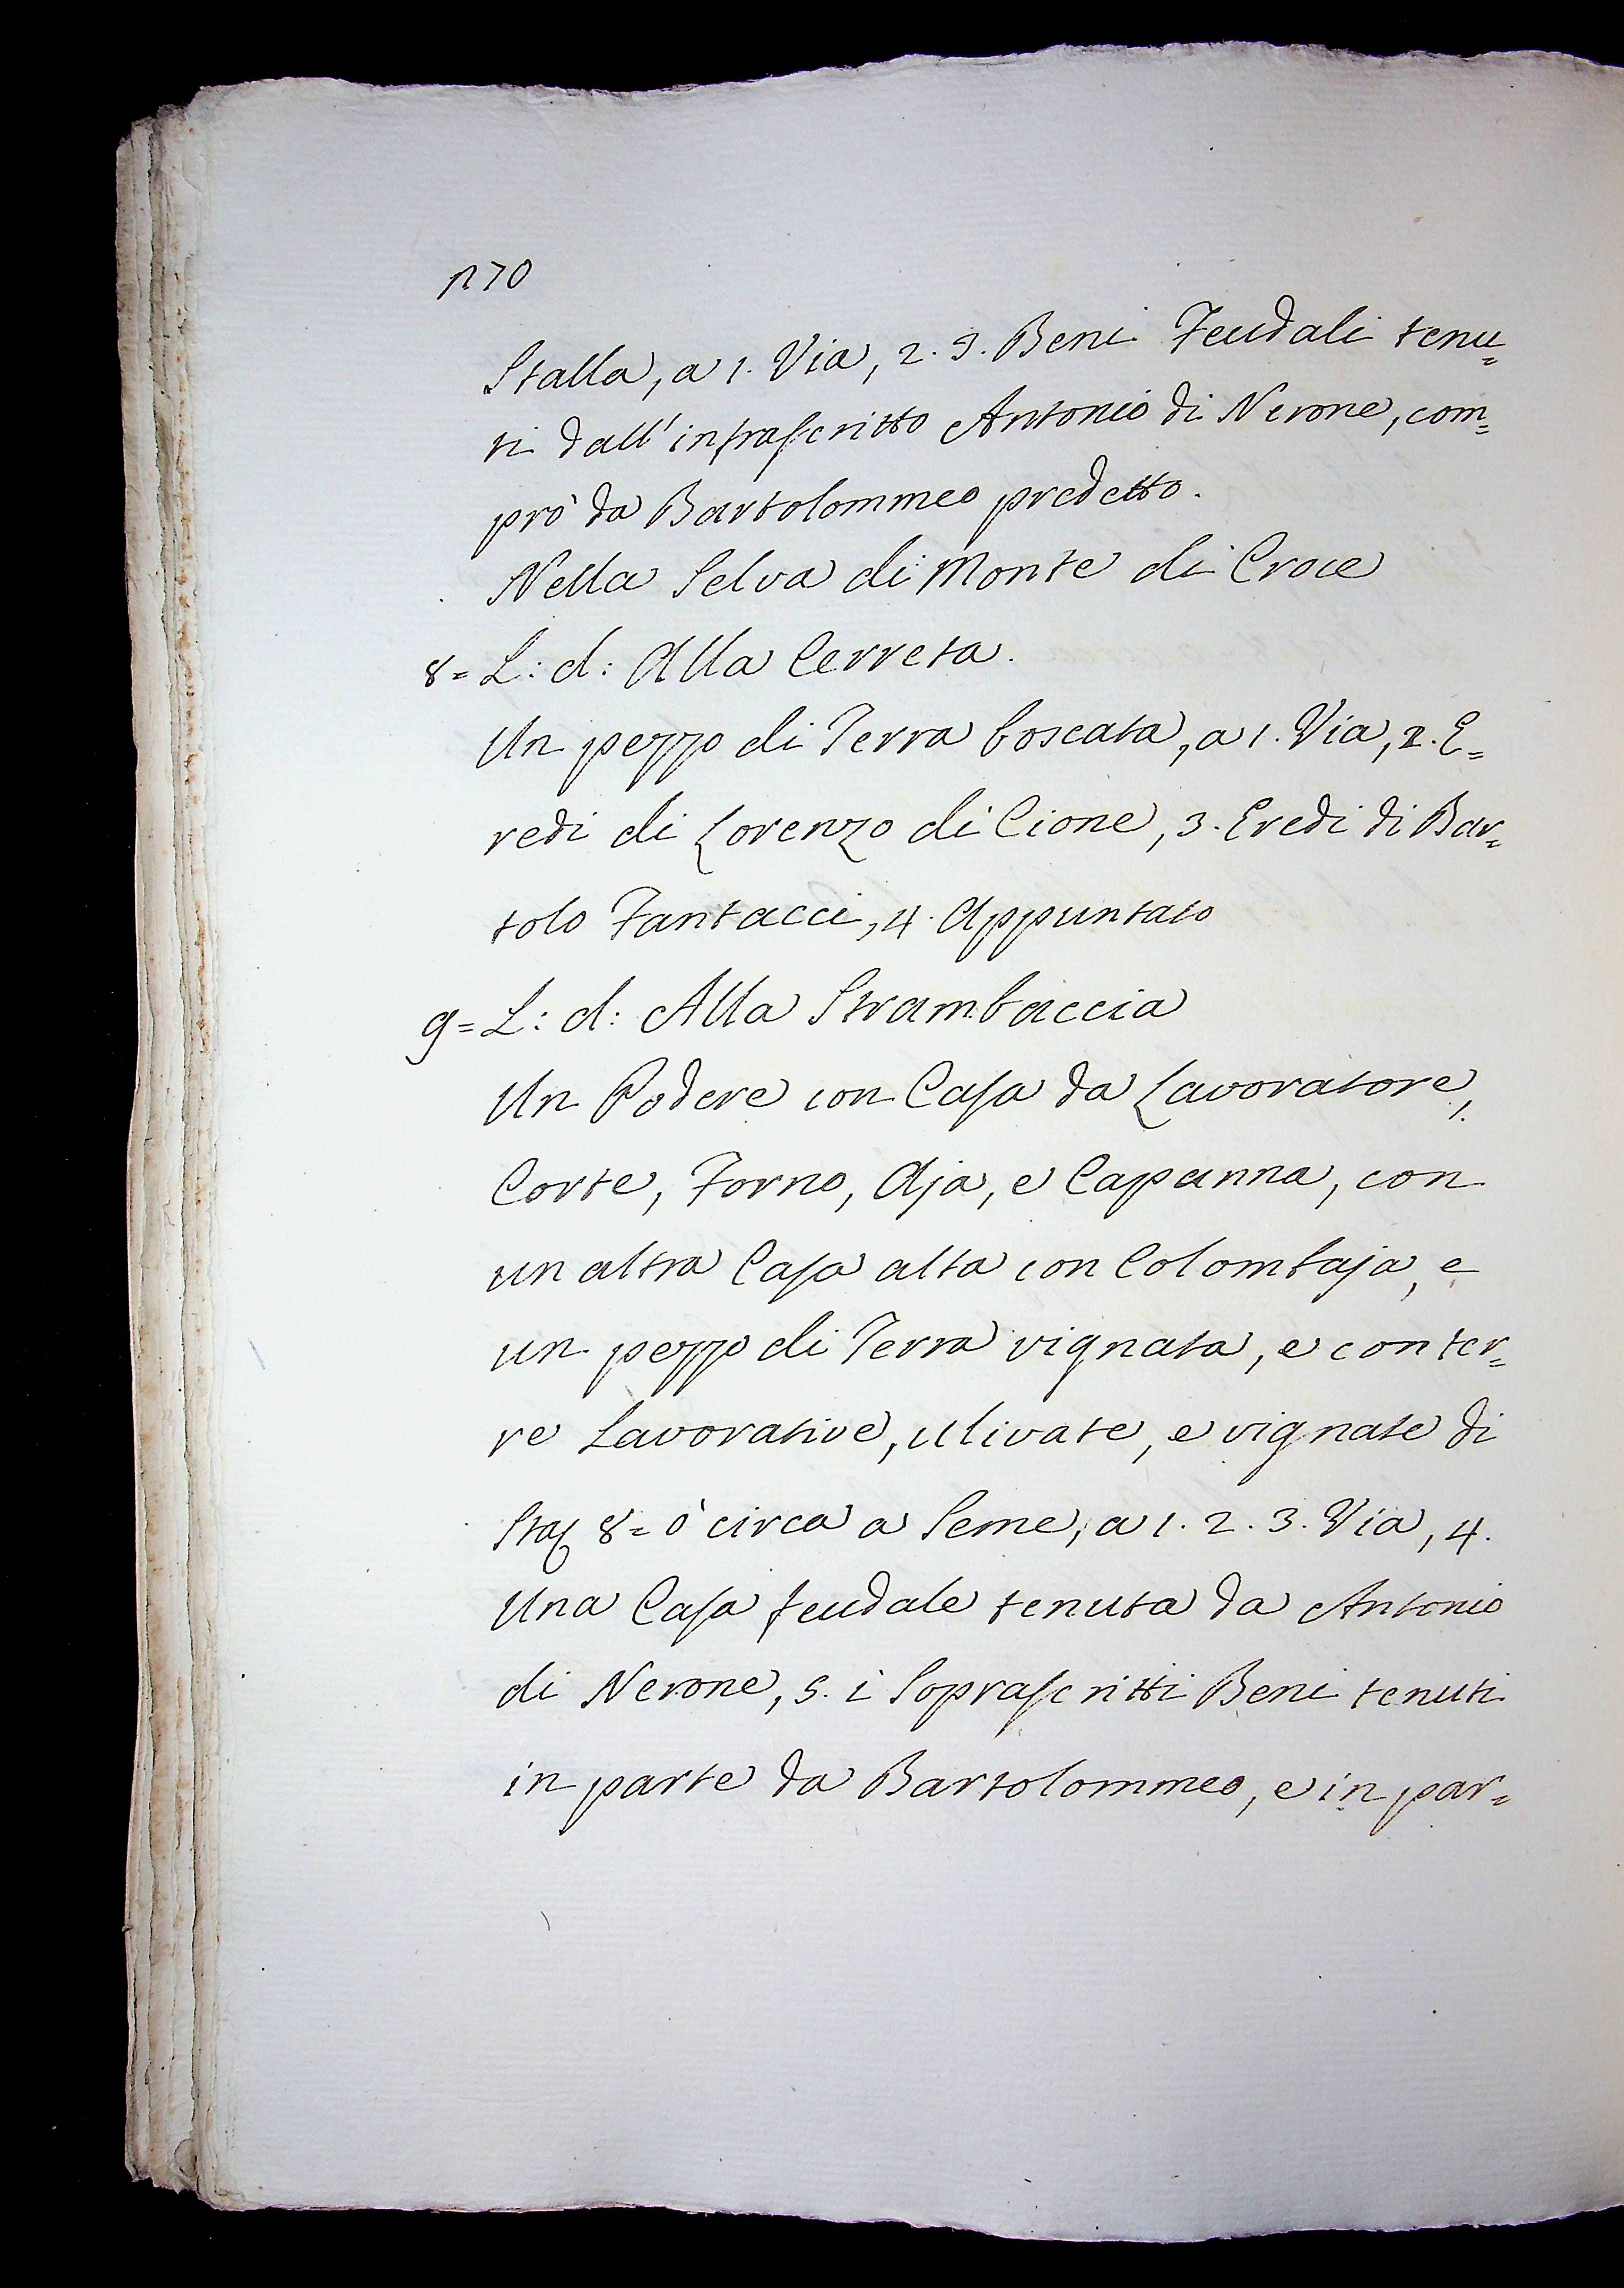 170
Stalla, a 1. Via, 2. 3. Beni Feudali tenu=
ti dall'infrascritto Antonio di Nerone, com=
prò da Bartolommeo predetto.
Nella Selva di Monte di Croce
8= L: d: Alla Cerreta.
Un pezzo di Terra boscata, a 1. Via, 2. E=
redi di Lorenzo di Cione, 3. Eredi di Bar=
tolo Fantacci, 4. Appuntato
9= L: d: Alla Strambaccia
Un Podere con Casa da Lavoratore,
Corte, Forno, Aja, e Capanna, con
un altra Casa alta con Colombaja, e
un pezzo di Terra vignata, e con ter=
re Lavorative, ulivate, e vignate di
Sta 8= ò circa a Seme, a 1. 2. 3. Via, 4.
Una Casa feudale tenuta da Antonio
di Nerone, 5. i Soprascritti Beni tenuti
in parte da Bartolommeo, e in par=